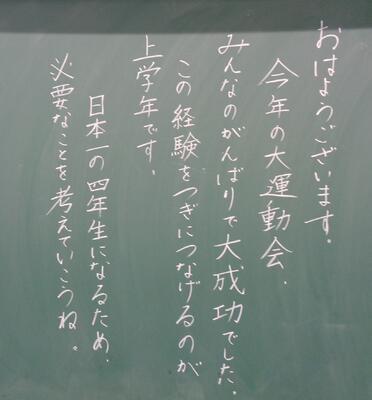 おはようございます。
今年の大運動会、
みんなのがんばりで大成功でした。
この経験をつぎにつなげるのが
上学年です。
日本一の四年生になるため、
必要なことを考えていこうね。